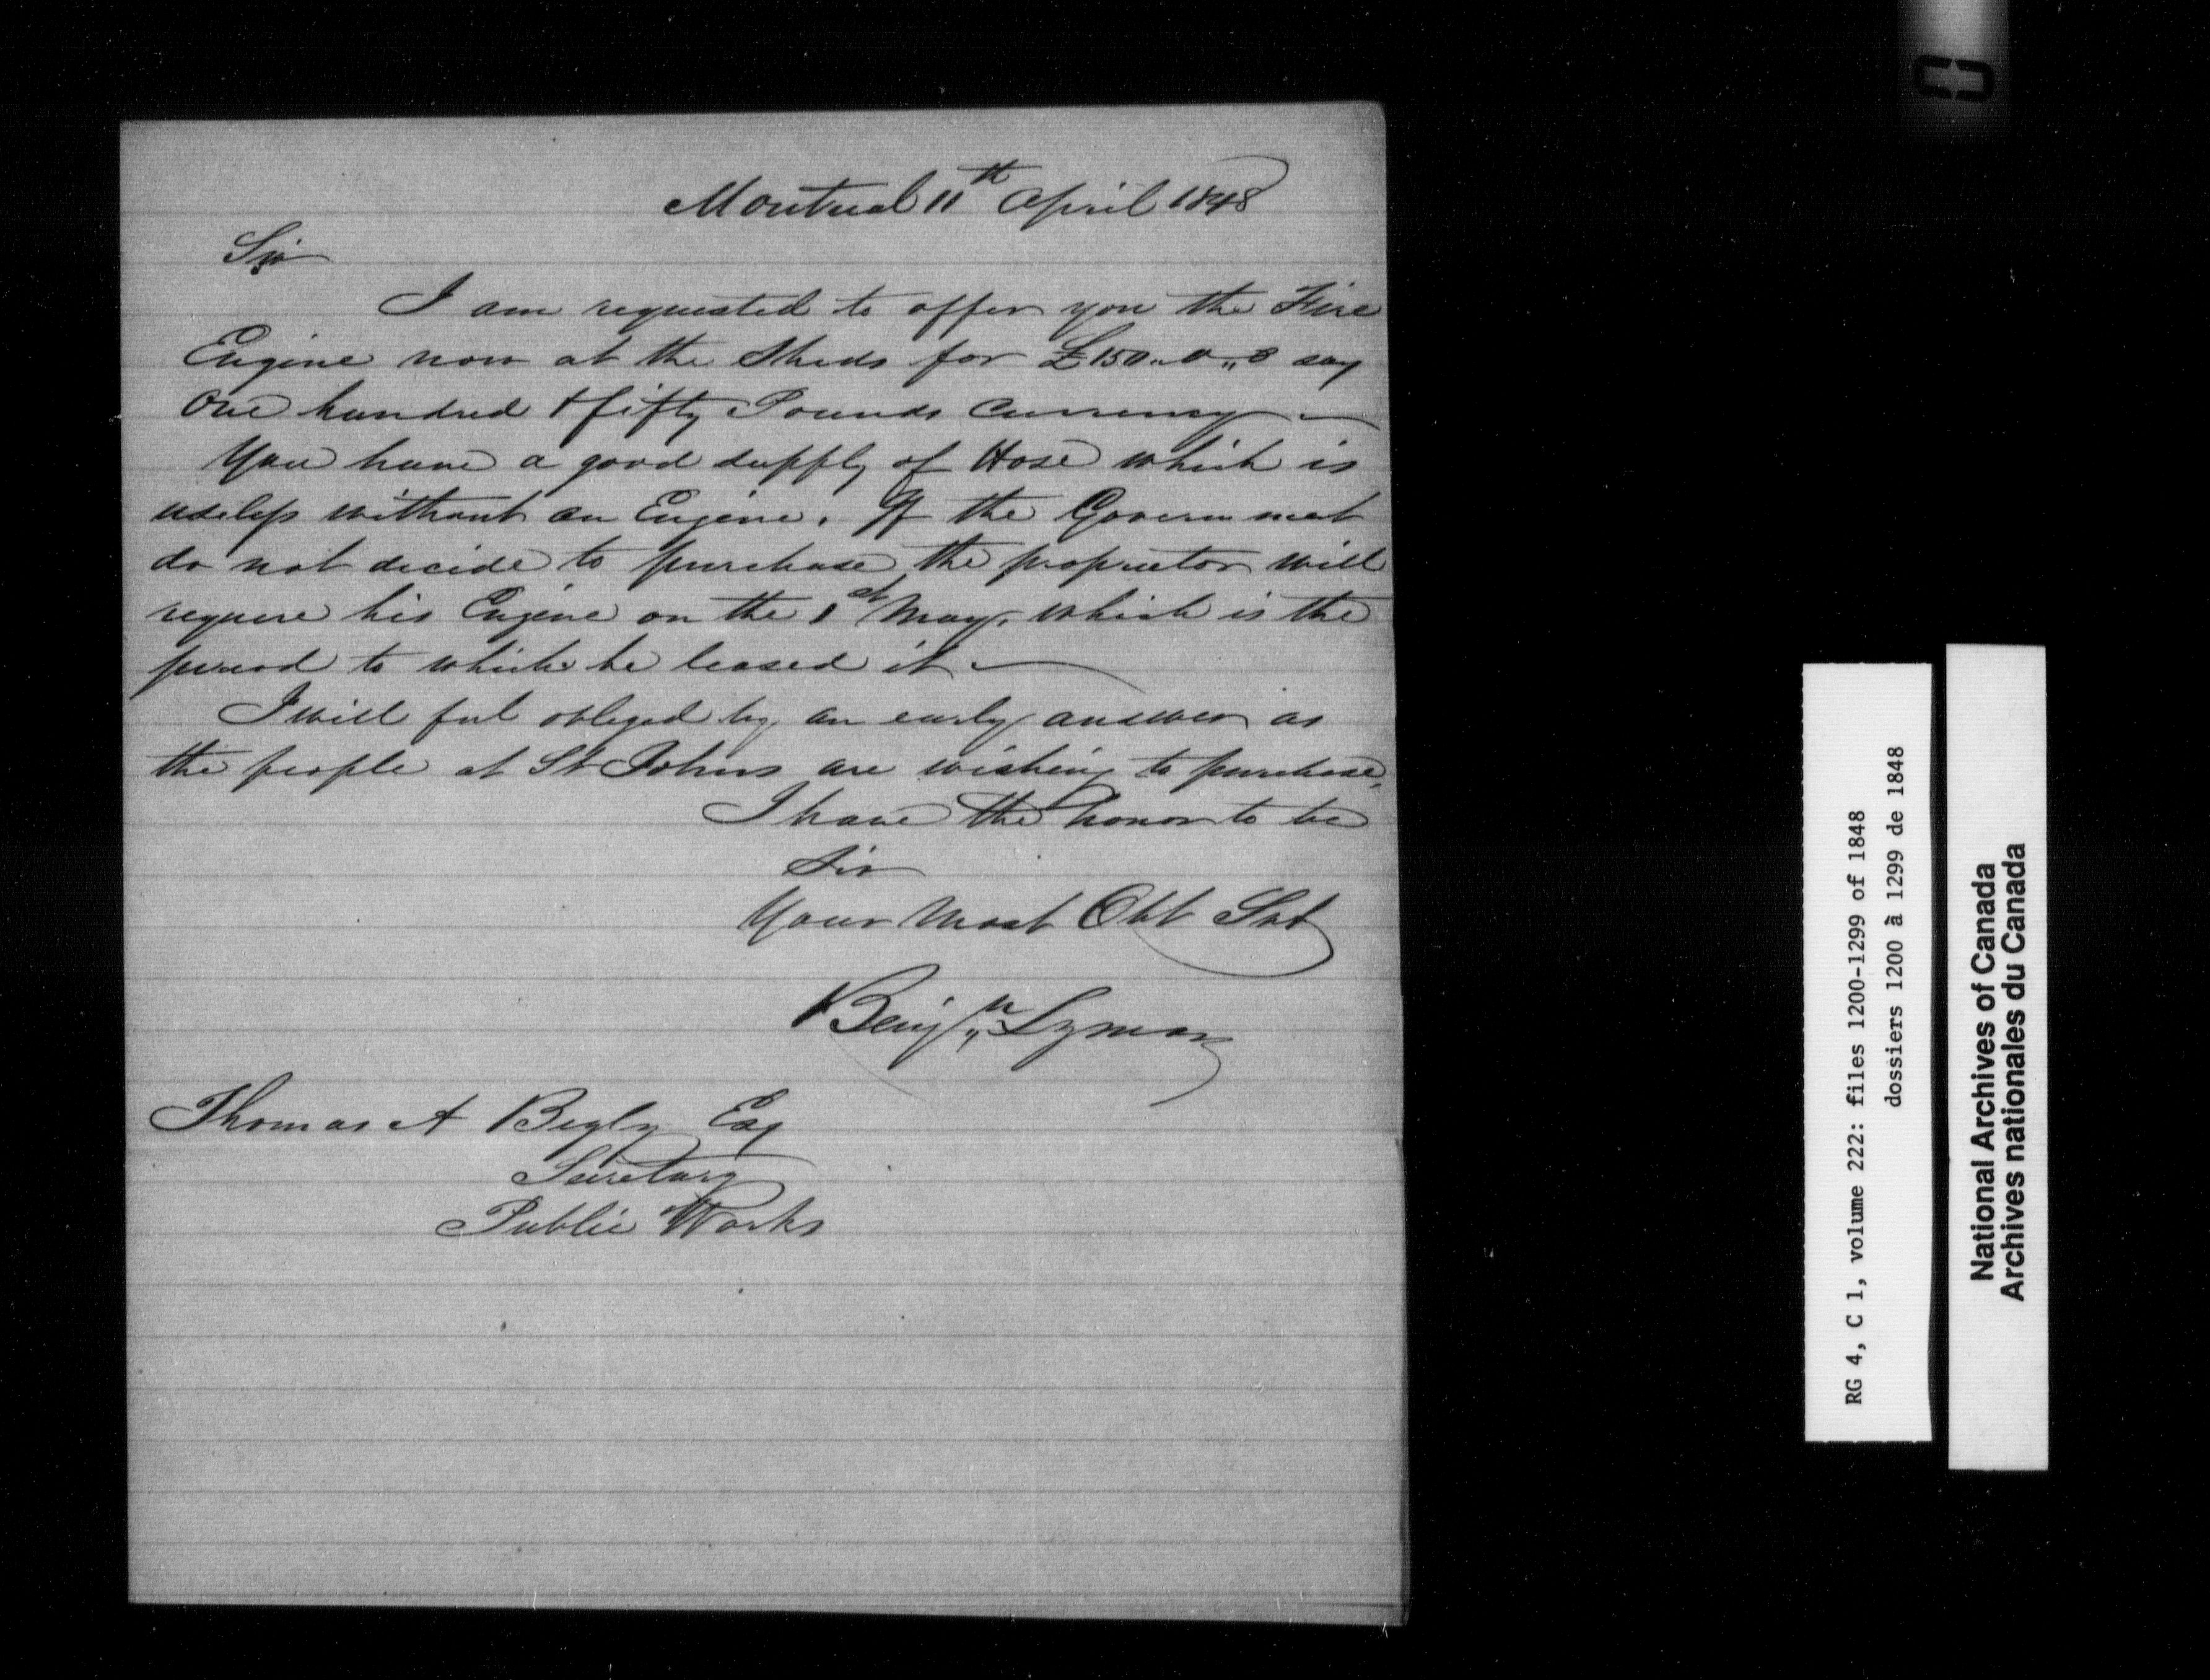 Montreal 11th April 1848
Sir
I am requested to offer you the Fire
Engine now at the Sheds for £150..0..0 say
One hundred & fifty Pounds Currency
You have a good supply of Hose which is
useless without an Engine. If the Government
do not decide to purchase the proprietor will
require his Engine on the 1st May, which is the
period to which he leased it
I will feel obliged by an early answer as
the people at St Johns are wishing to purchase,
I have the honor to be
Sir
Your Most Obt Svt
Benjn Lyman
Thomas A Begly Esq
Secretary
Public Works
RG 4, C 1, volume 222: files 1200-1299 of 1848
dossiers 1200 à 1299 de 1848
National Archives of Canada
Archives nationales du Canada